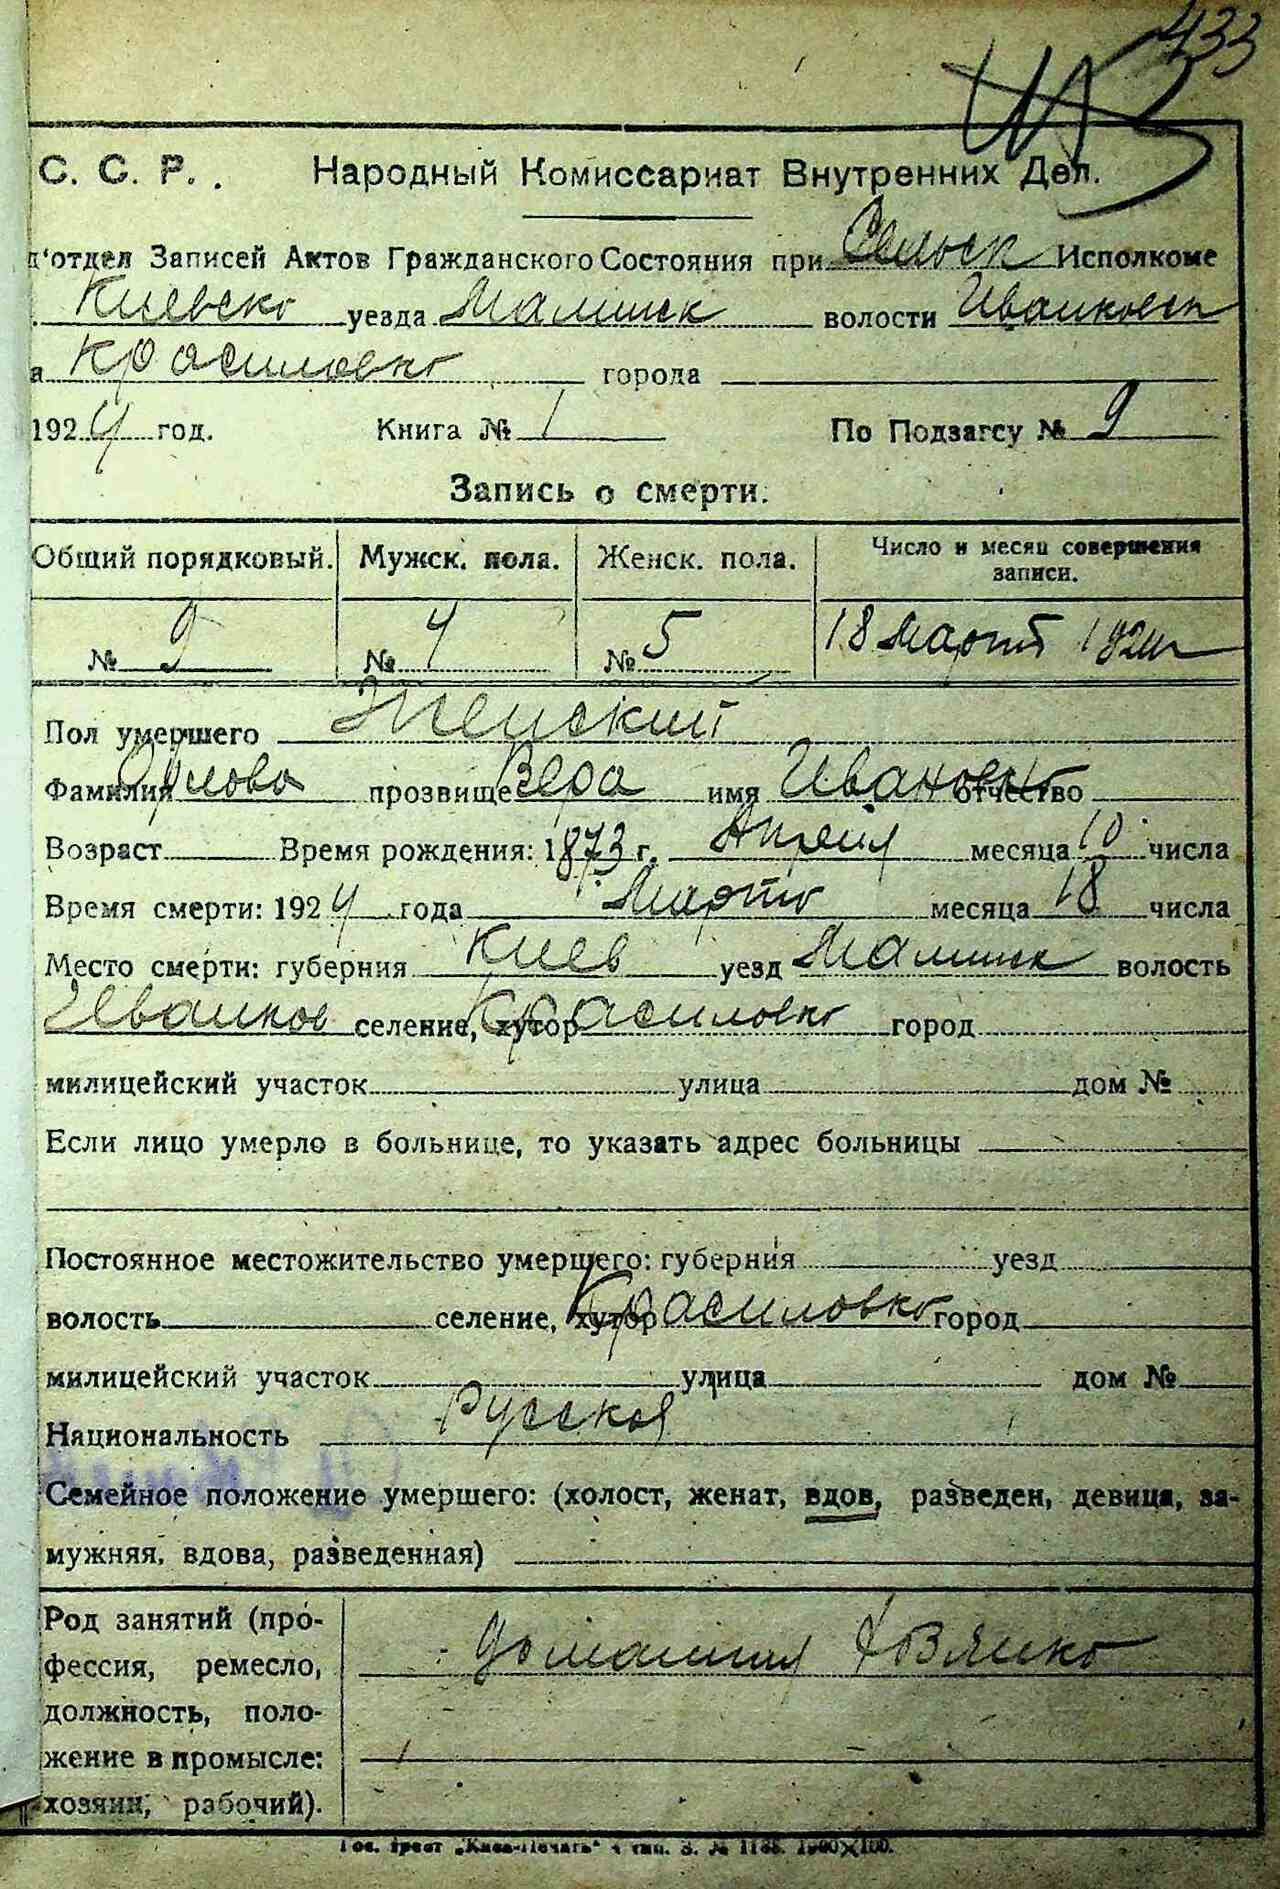 433
С. С. Р. . Народный Комиссариат Внутренних Дел.
д'отдел Записей Актов Гражданского Состояния при Сельск Исполкоме
Киевско уезда Малинск волости Иванковск
а Красиловко города
1924 год. Книга № 1 По Подзагсу № 9
Запись о смерти.
Общий порядковый. Мужск. пола. Женск. пола. Число и месяц совершения записи.
№ 9 № 4 № 5 18 Март 1924 г
Пол умершего Женский
Фамилия Орлова прозвище Вера имя Ивановно отчество
Возраст Время рождения: 1873 г. Апреля месяца 10 числа
Время смерти: 1924 года Марто месяца 18 числа
Место смерти: губерния Киев уезд Малинск волость
Иванков селение, хутор Красиловко город
милицейский участок улица дом №
Если лицо умерло в больнице, то указать адрес больницы
Постоянное местожительство умершего: губерния уезд
волость селение, хутор Красиловко город
милицейский участок улица дом №
Национальность Русская
Семейное положение умершего: (холост, женат, вдов, разведен, девица, за-
мужняя, вдова, разведенная)
Род занятий (про-
фессия, ремесло, домашняя
должность, поло-
жение в промысле:
хозяин, рабочий).
Гос. трест „Киев-Печать" 4 тип. З. № 1135. 1900×100.